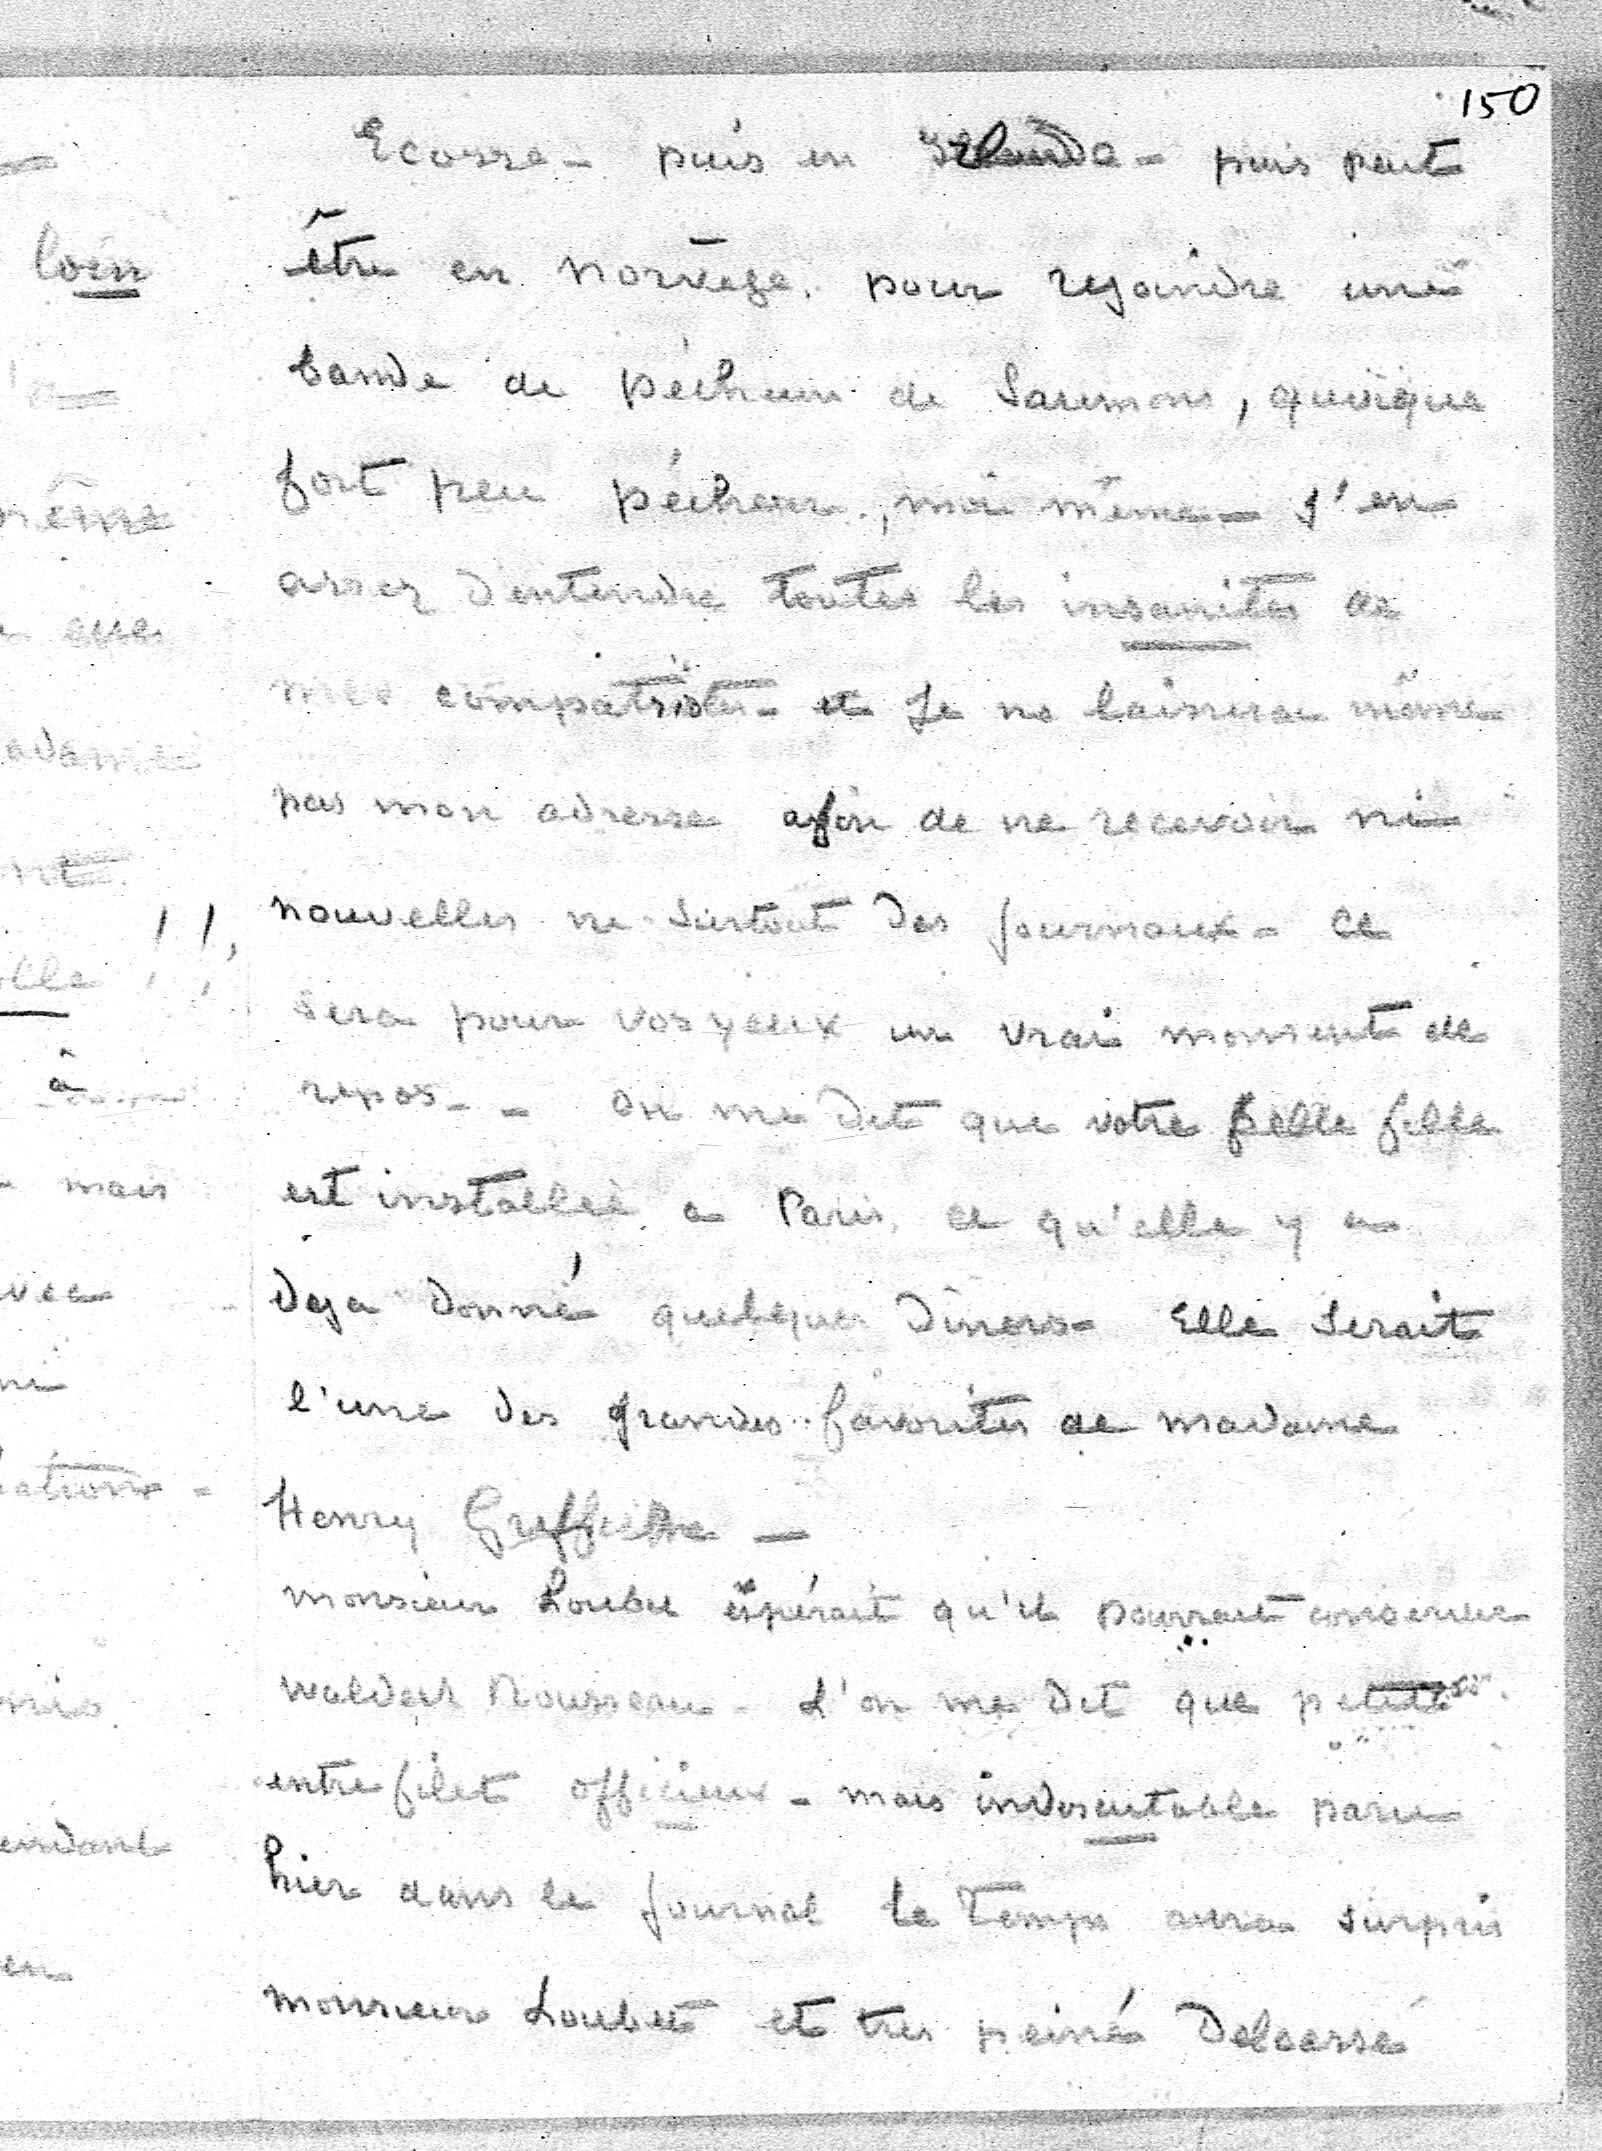 150
Ecosse - puis en Irlande - puis peut
être en norvège. pour rejoindre une
bande de pécheurs de Saumons, quoique
fort peu pécheur, moi même - J'en
assez d'entendre toutes les insanités de
mes compatriotes - et Je ne laisserai même
pas mon adresse afin de ne recevoir ni
nouvelles ni Surtout des Journaux - Ce
Sera pour vos yeux un vrai moment de
repos - - on me dit que votre belle fille
est installée a Paris, et qu'elle y a
deja donné quelques Dîners - Elle Serait
l'une des grandes favorites de madame
Henry
monsieur Loubet espérait qu'il pourrait conserver
waldeck Rousseau - L'on me dit que petit
entrefilet officieux - mais indiscutable paru
hier dans le Journal le Temps aura Surpris
monsieur Loubet et très peiné Delcassé
loin
même
mais
à